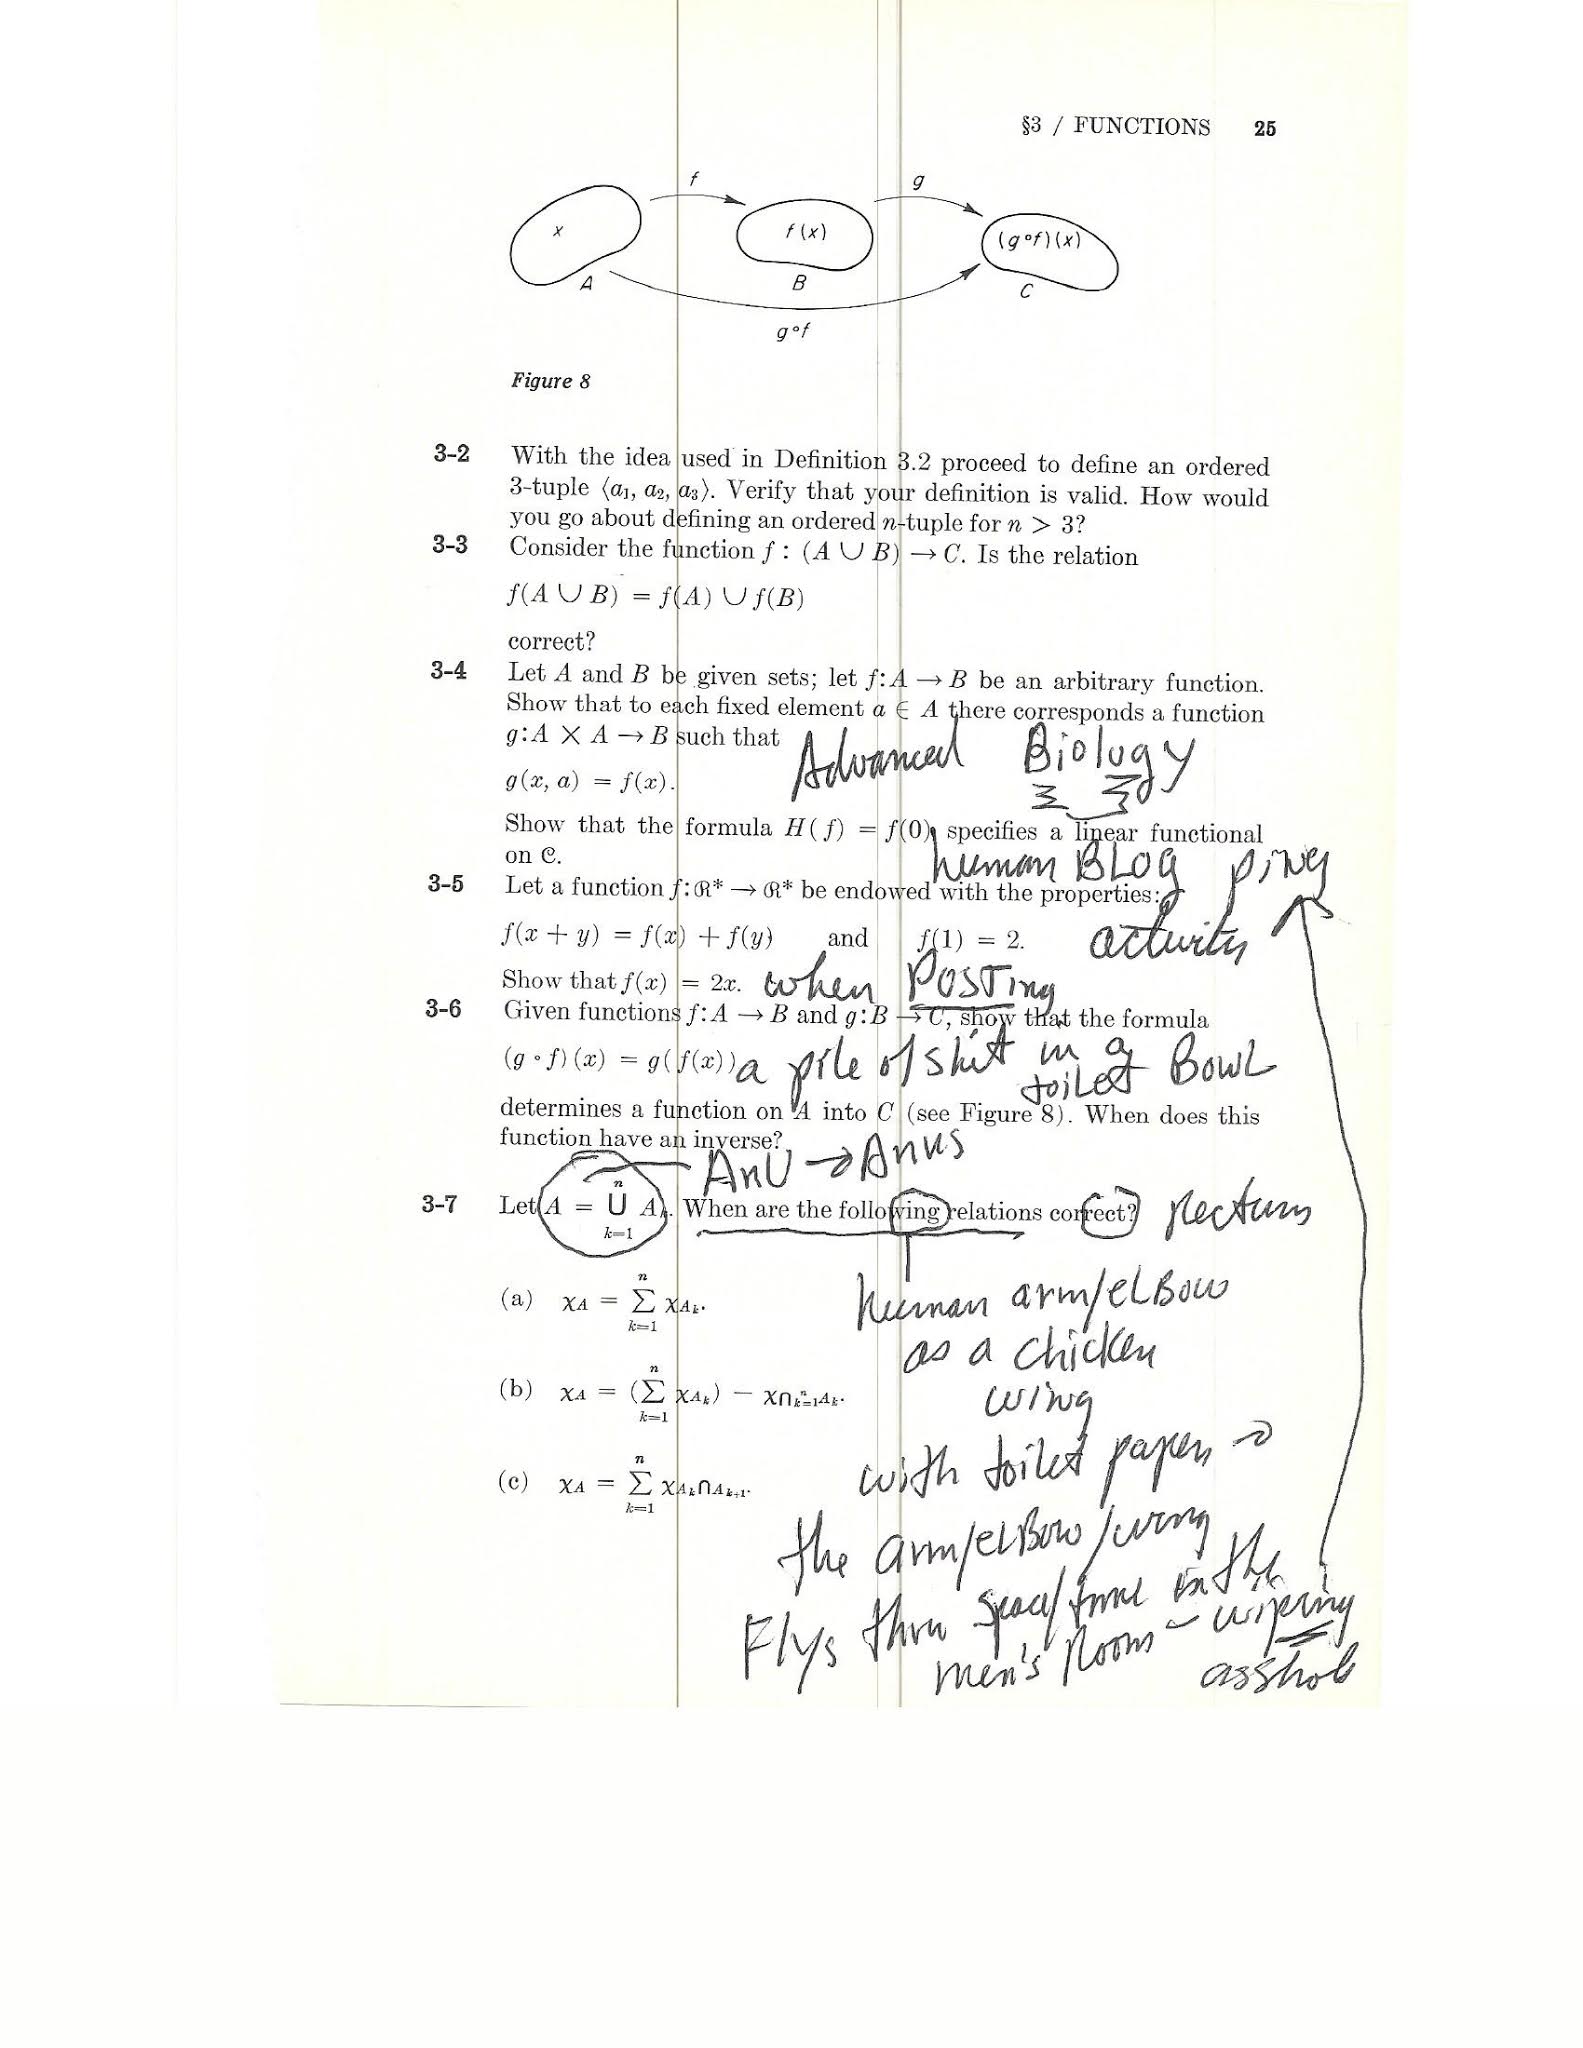 §3 / FUNCTIONS 25
f g
x f(x) (g∘f)(x)
A B C
g∘f
Figure 8
3-2 With the idea used in Definition 3.2 proceed to define an ordered
3-tuple ⟨a₁, a₂, a₃⟩. Verify that your definition is valid. How would
you go about defining an ordered n-tuple for n > 3?
3-3 Consider the function f : (A ∪ B) → C. Is the relation
f(A ∪ B) = f(A) ∪ f(B)
correct?
3-4 Let A and B be given sets; let f: A → B be an arbitrary function.
Show that to each fixed element a ∈ A there corresponds a function
g: A × A → B such that
Advanced Biology
g(x, a) = f(x).
Show that the formula H(f) = f(0) specifies a linear functional
on C.
human BLOG ping
3-5 Let a function f: R* → R* be endowed with the properties:
f(x + y) = f(x) + f(y) and f(1) = 2.
activity
Show that f(x) = 2x.
when POSTing
3-6 Given functions f: A → B and g: B → C, show that the formula
(g ∘ f)(x) = g(f(x))
a pile of shit in a
toilet Bowl
determines a function on A into C (see Figure 8). When does this
function have an inverse?
AnU → Anus
3-7 Let A = ⋃ₖ₌₁ⁿ Aₖ. When are the following relations correct?
Rectum
(a) χA = ∑ₖ₌₁ⁿ χAₖ.
human arm/elBow
as a chicken
(b) χA = (∑ₖ₌₁ⁿ χAₖ) − χ∩ₖ₌₁ⁿAₖ.
wing
with toilet paper →
(c) χA = ∑ₖ₌₁ⁿ χAₖ∩Aₖ₊₁.
the arm/elBow/wing
Flys thru space/time in the
men's Room - wiping
asshole